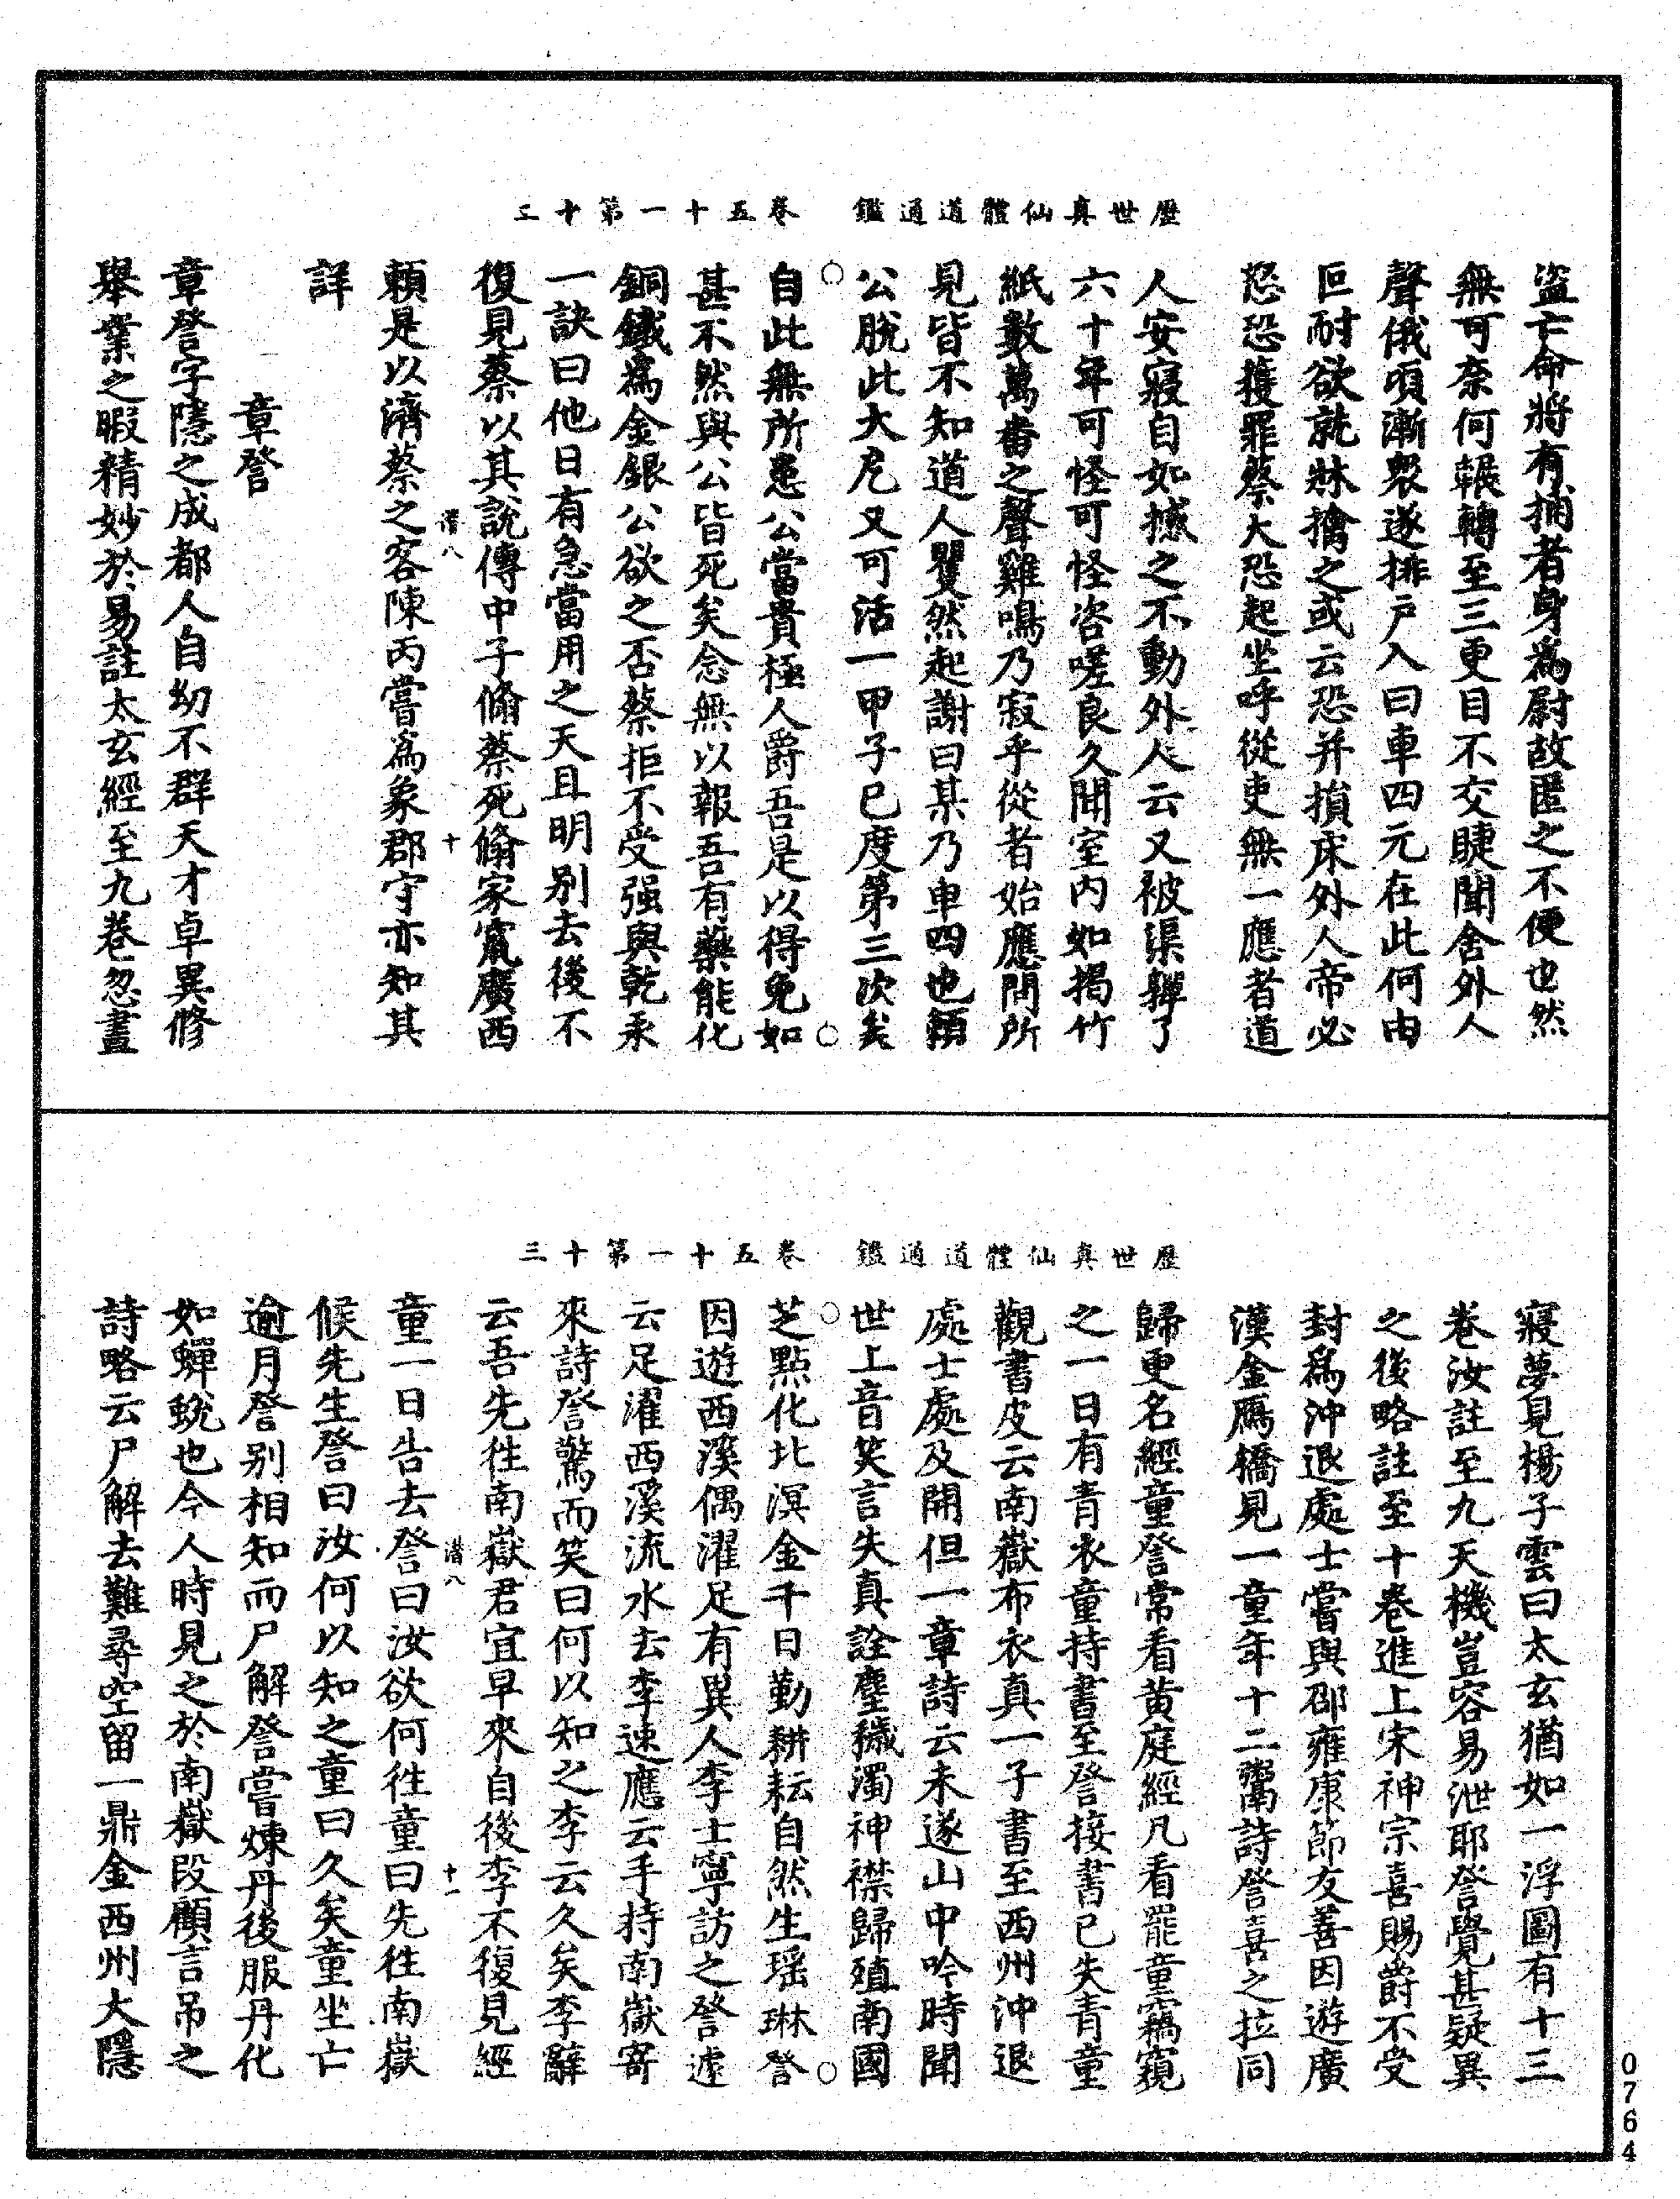 歷世真仙體道通鑑　卷五十一第十三
盜亡命將有捕者身為尉故匿之不便也然
無可奈何輾轉至三更目不交睫聞舍外人
聲俄頃漸眾遂排戶入曰車四元在此何由
叵耐欲就牀擒之或云恐并損床外人帝必
怒恐獲罪蔡大恐起坐呼從吏無一應者道
人安寢自如撼之不動外人云又被渠亸了
六十年可怪可怪咨嗟良久聞室內如揭竹
紙數萬番之聲雞鳴乃寂乎從者始應問所
見皆不知道人矍然起謝曰某乃車四也賴
公脫此大厄又可活一甲子已度第三次矣
自此無所患公當貴極人爵吾是以得免如
甚不然與公皆死矣念無以報吾有藥能化
銅鐵為金銀公欲之否蔡拒不受强與乾汞
一訣曰他日有急當用之天且明別去後不
復見蔡以其說傳中子絛蔡死絛家竄廣西
潛八
十
賴是以濟蔡之客陳丙嘗為象郡守亦知其
詳
章詧
章詧字隱之成都人自幼不群天才卓異修
舉業之暇精妙於易註太玄經至九卷忽晝
歷世真仙體道通鑑　卷五十一第十三
寢夢見楊子雲曰太玄猶如一浮圖有十三
卷汝註至九天機豈容易泄耶詧覺甚疑異
之後略註至十卷進上宋神宗喜賜爵不受
封為沖退處士嘗與邵雍康節友善因遊廣
漢金鴈橋見一童年十二鬻詩詧喜之拉同
歸更名經童詧常看黃庭經凡看罷童竊窺
之一日有青衣童持書至詧接書已失青童
觀書皮云南嶽布衣真一子書至西州沖退
處士處及開但一章詩云未遂山中吟時聞
世上音笑言失真詮塵穢濁神襟歸殖南國
芝點化北溟金千日勤耕耘自然生瑶琳詧
因遊西溪偶濯足有異人李士寧訪之詧遽
云足濯西溪流水去李速應云手持南嶽寄
來詩詧驚而笑曰何以知之李云久矣李辭
云吾先往南嶽君宜早來自後李不復見經
潛八
十一
童一日告去詧曰汝欲何往童曰先往南嶽
候先生詧曰汝何以知之童曰久矣童坐亡
逾月詧別相知而尸解詧嘗煉丹後服丹化
如蟬蛻也今人時見之於南嶽段顧言弔之
詩略云尸解去難尋空留一鼎金西州大隱
0764